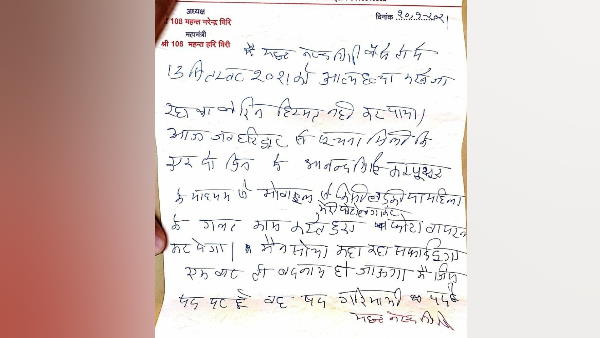 अध्यक्ष
श्री 108 महन्त नरेन्द्र गिरि
महामंत्री
श्री 108 महन्त हरि गिरी
दिनांक २०.9.२०२१
मैं महन्त नरेन्द्र गिरि वैसे तो मैं
13 सितम्बर २०२१ को आत्महत्या करने जा
रहा था लेकिन हिम्मत नही कर पाया।
आज जब हरिद्वार से सूचना मिली कि
एक दो दिन में आनन्द गिरि कम्प्यूटर
के माध्यम से मोबाइल से किसी लडकी या महिला
मेरी फोटो लगाकर
के गलत काम करते हुए फोटो वायरल
कर देगा। मैने सोचा कहा तक सफाई दूंगा
एक बार तो बदनाम हो जाऊगा मैं जिस
पद पर हूँ वह पद गरिमामयी पद है
महन्त नरेन्द्र गिरि